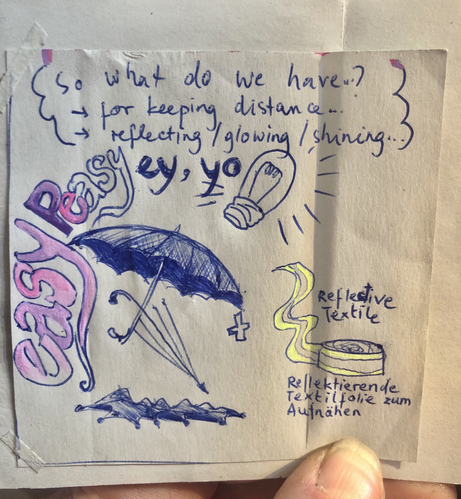 So what do we have..?
→ for keeping distance...
→ reflecting/glowing/shining...
ey, yo
easy Peasy
+
Reflective
Textile
Reflektierende
Textilfolie zum
Aufnähen